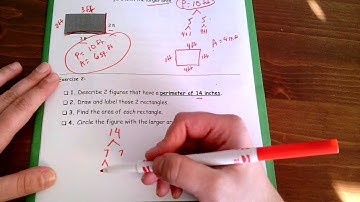 3ft
P = 10ft
2ft
2ft
5 5
4+1 4+1
P = 10ft
A = 6 sq. ft
4ft
4ft
Exercise 2:
1. Describe 2 figures that have a perimeter of 14 inches.
2. Draw and label those 2 rectangles.
3. Find the area of each rectangle.
4. Circle the figure with the larger
14
7 7